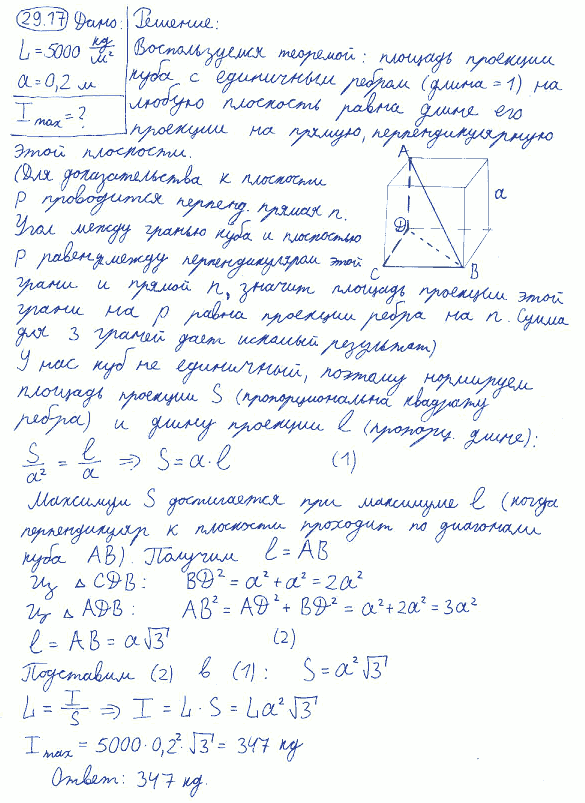 29.17 Дано: Решение:
L = 5000 кд/м² Воспользуемся теоремой: площадь проекции
a = 0,2 м куба с единичным ребром (длина = 1) на
I max = ? любую плоскость равна длине его
проекции на прямую, перпендикулярную
этой плоскости.
(Для доказательства к плоскости
p проводится перпенд. прямая n.
Угол между гранью куба и плоскостью
p равен между перпендикуляром этой
грани и прямой n, значит площадь проекции этой
грани на p равна проекции ребра на n. Сумма
для 3 граней дает искомый результат)
A
a
D
C
B
У нас куб не единичный, поэтому нормируем
площадь проекции S (пропорциональна квадрату
ребра) и длину проекции l (пропорц. длине):
S/a² = l/a ⇒ S = a · l (1)
Максимум S достигается при максимуме l (когда
перпендикуляр к плоскости проходит по диагонали
куба AB). Получим l = AB
Из △ CDB: BD² = a² + a² = 2a²
Из △ ADB: AB² = AD² + BD² = a² + 2a² = 3a²
l = AB = a√3 (2)
Подставим (2) в (1): S = a²√3
L = I/S ⇒ I = L · S = La²√3
I max = 5000 · 0,2² · √3 = 347 кд
Ответ: 347 кд.